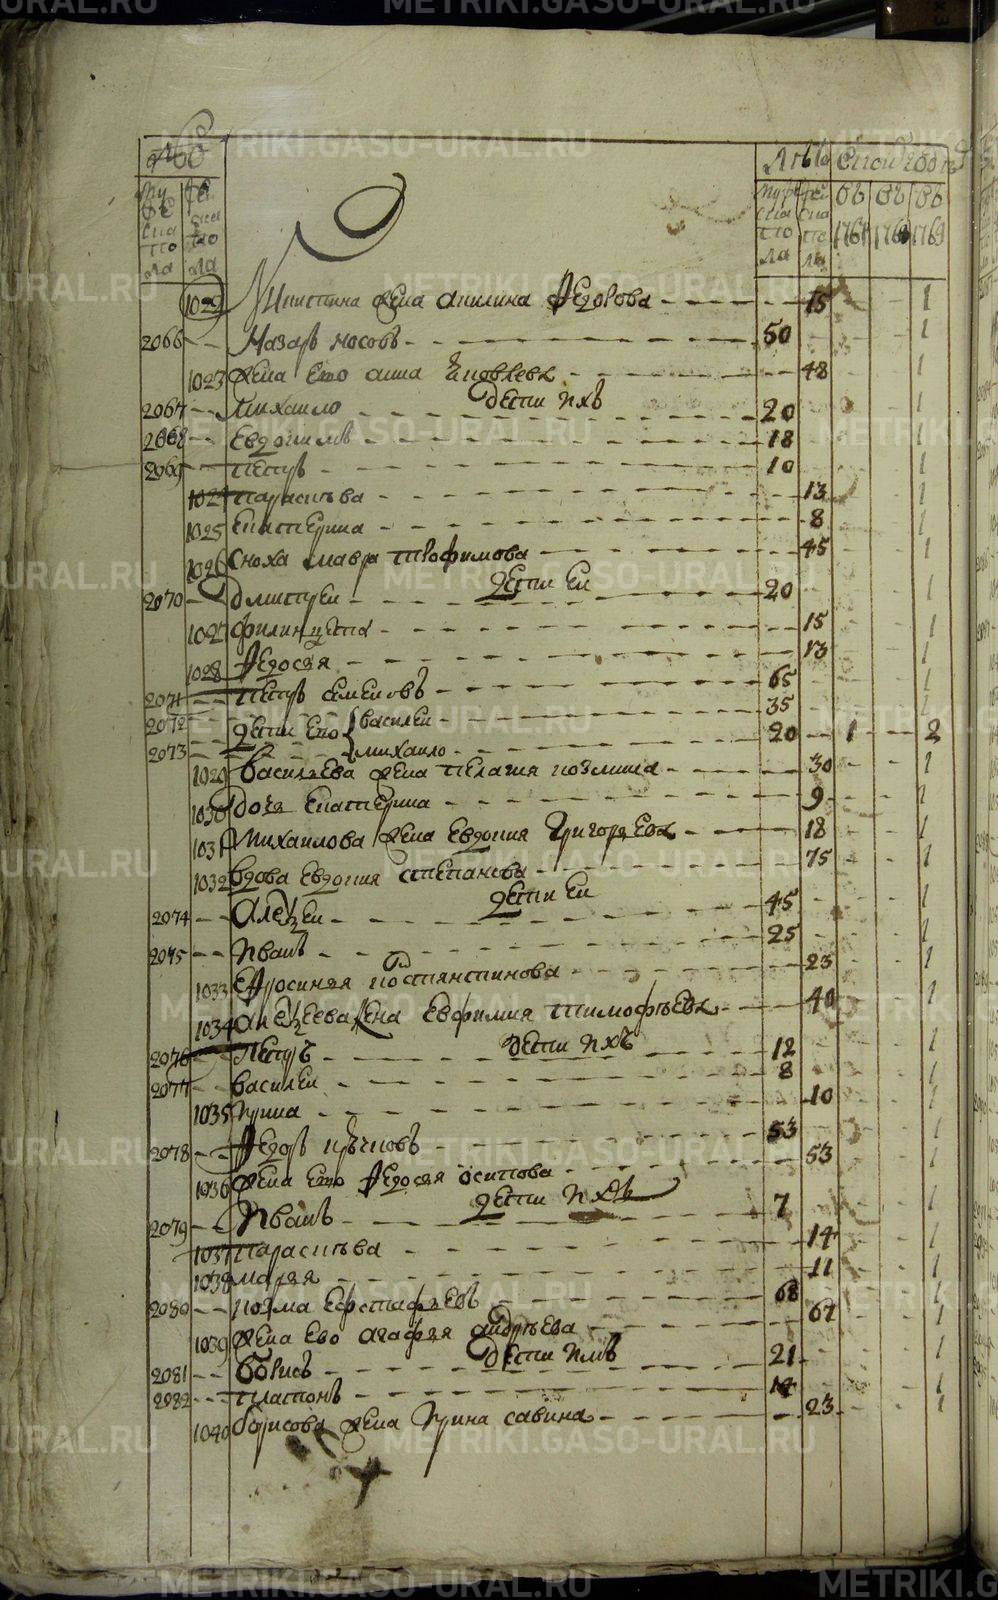 METRIKI.GASO-URAL.RU
№
Муже ска по ла
Же ска по ла
Лѣта
Муже ска по ла
Же ска по ла
въ 1767
въ 176
въ 1769
Никитина жена Акилина Федорова 15 1
2066 Назаръ Носовъ 50 1
1023 жена ево Анна Яковлева 48 1
дети ихъ
2067 Михаило 20 1
2068 Евдокимъ 18 1
2069 Петръ 10 1
1024 Парасковья 13 1
1025 Екатерина 8 1
1026 Сноха Мавра Трофимова 45 1
дети ея
2070 Дмитреи 20 1
1027 Филицета 15 1
1028 Федосья 13 1
2071 Петръ Семеновъ 65 1
2072 дети ево Василеи 35
2073 Михаило 20 1 2
1029 Васильева жена Пелагия Козмина 30 1
1030 дочь Екатерина 9 1
1031 Михаилова жена Евдокия Григорьева 18 1
1032 Вдова Евдокия Степанова 75 1
дети ея
2074 Алексеи 45 1
2075 Иванъ 25 1
1033 Ефросинья Костянтинова 23 1
1034 Алексеева жена Евфимия Тимофѣева 40 1
дети ихъ
2076 Петръ 12 1
2077 Василеи 8 1
1035 Ирина 10 1
2078 Федоръ 53 1
1036 жена ево Федосья Осипова 53 1
дети ихъ
2079 Иванъ 7 1
1037 Парасковья 14 1
1038 Марья 11 1
2080 Козма Ефстафьевъ 68 1
1039 жена ево Агафья Андрѣева 67 1
дети ихъ
2081 Борисъ 21 1
2082 Платонъ 14 1
1040 Борисова жена Ирина Савина 23 1